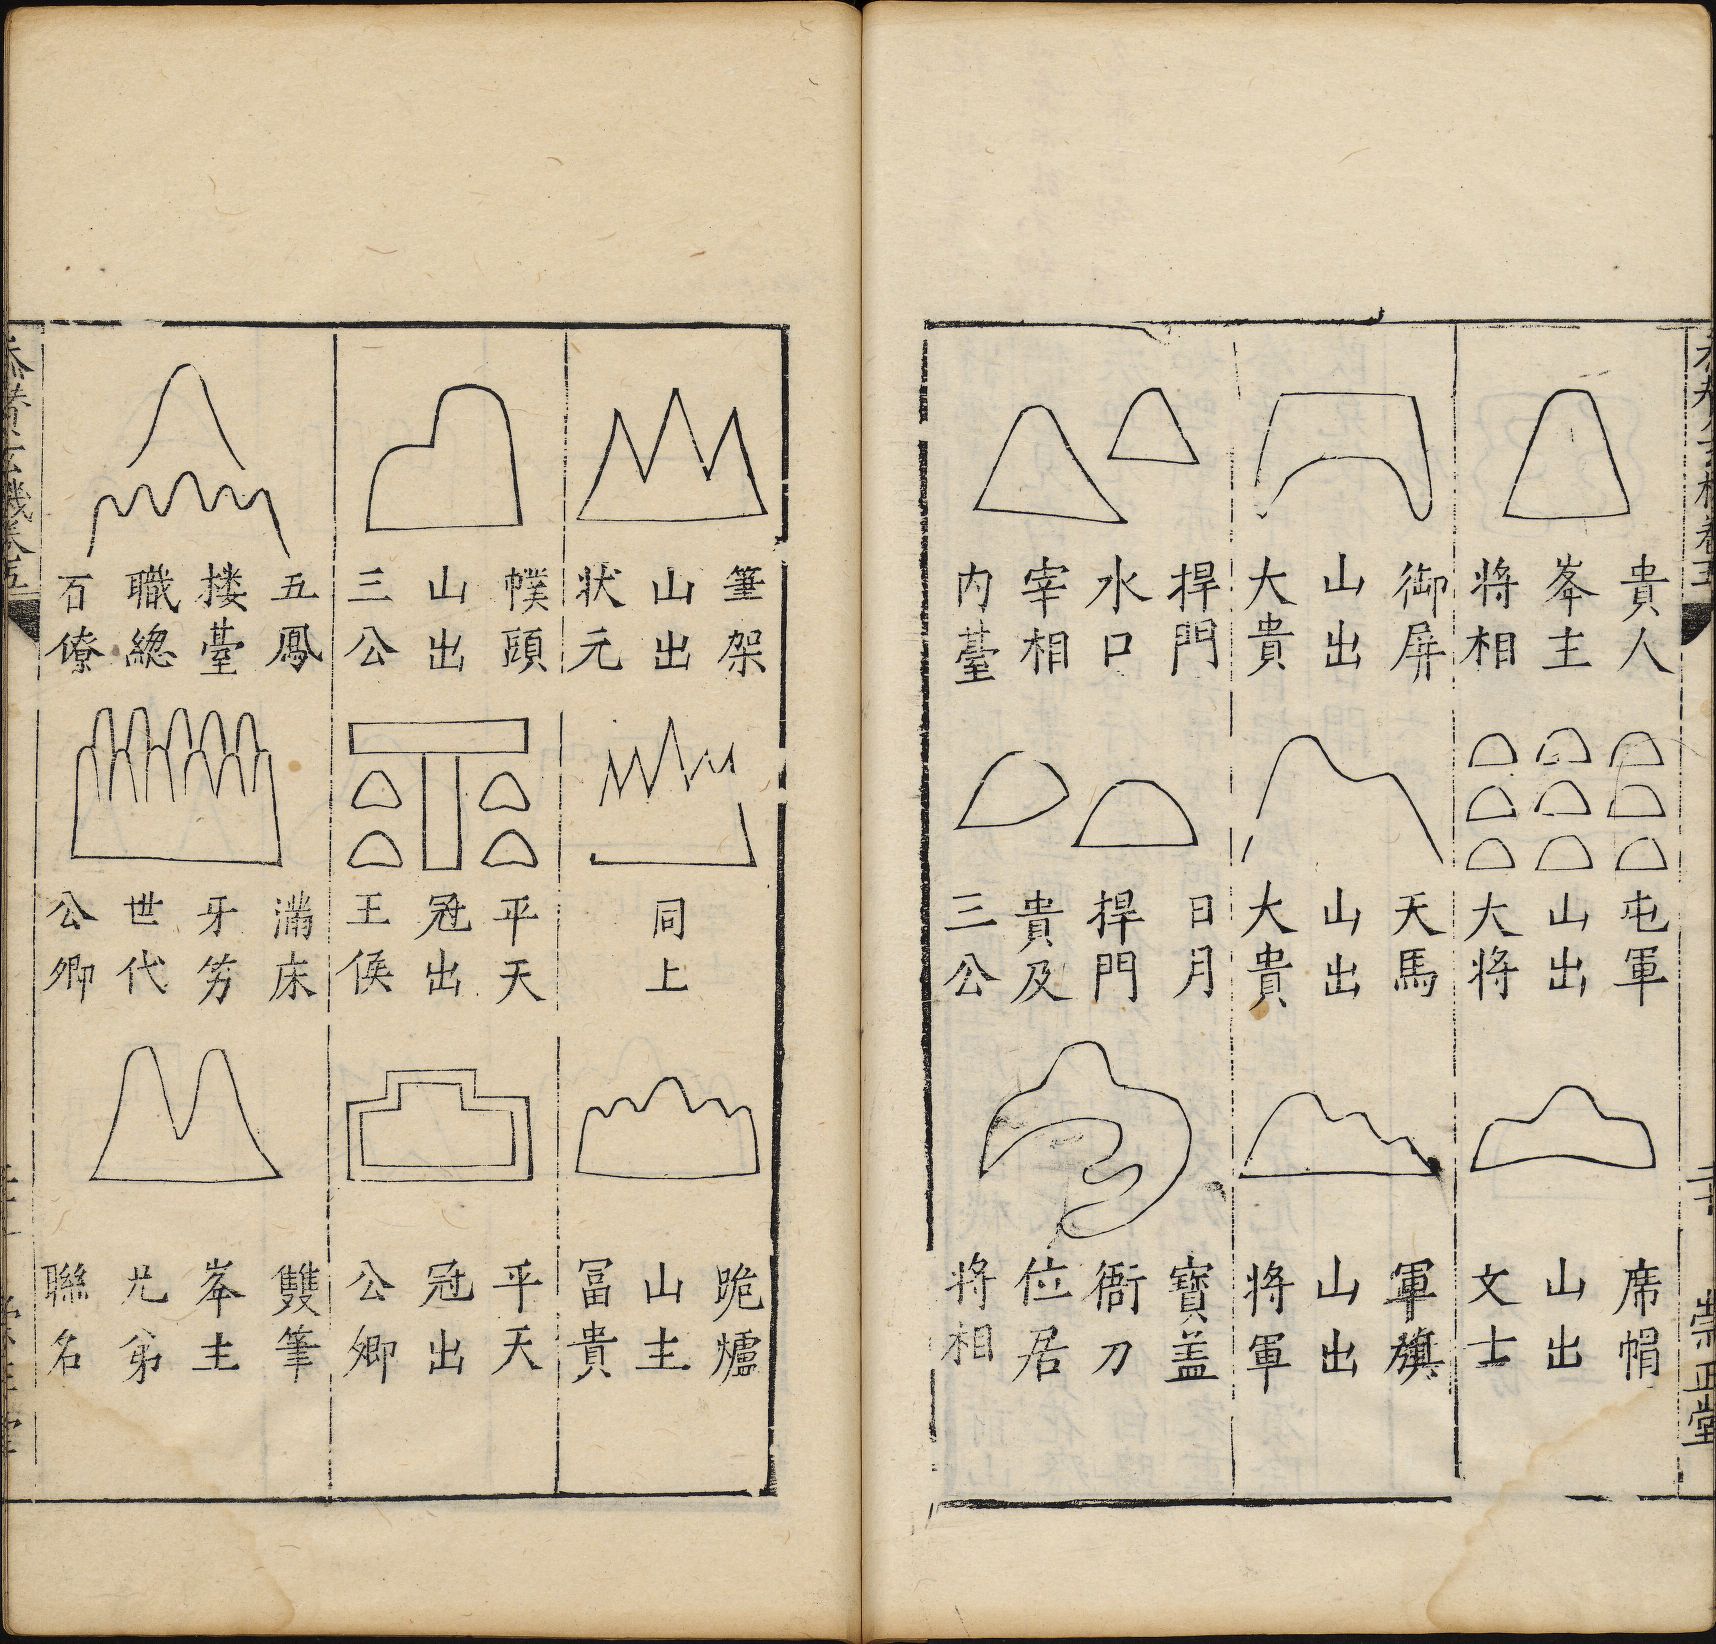 貴人
峯主
将相
御屏
山出
大貴
捍門
水口
宰相
内䑓
屯軍
山出
大将
天馬
山出
大貴
日月
捍門
貴及
三公
席帽
山出
文士
軍旗
山出
将軍
寳盖
衙刀
位居
将相
崇正堂
筆架
山出
状元
幞頭
山出
三公
五鳳
楼䑓
職緫
石僚
同上
平天
冠出
王侯
滿床
牙笏
世代
公卿
跪爐
山主
冨貴
平天
冠出
公卿
雙筆
峯主
兄弟
聯名